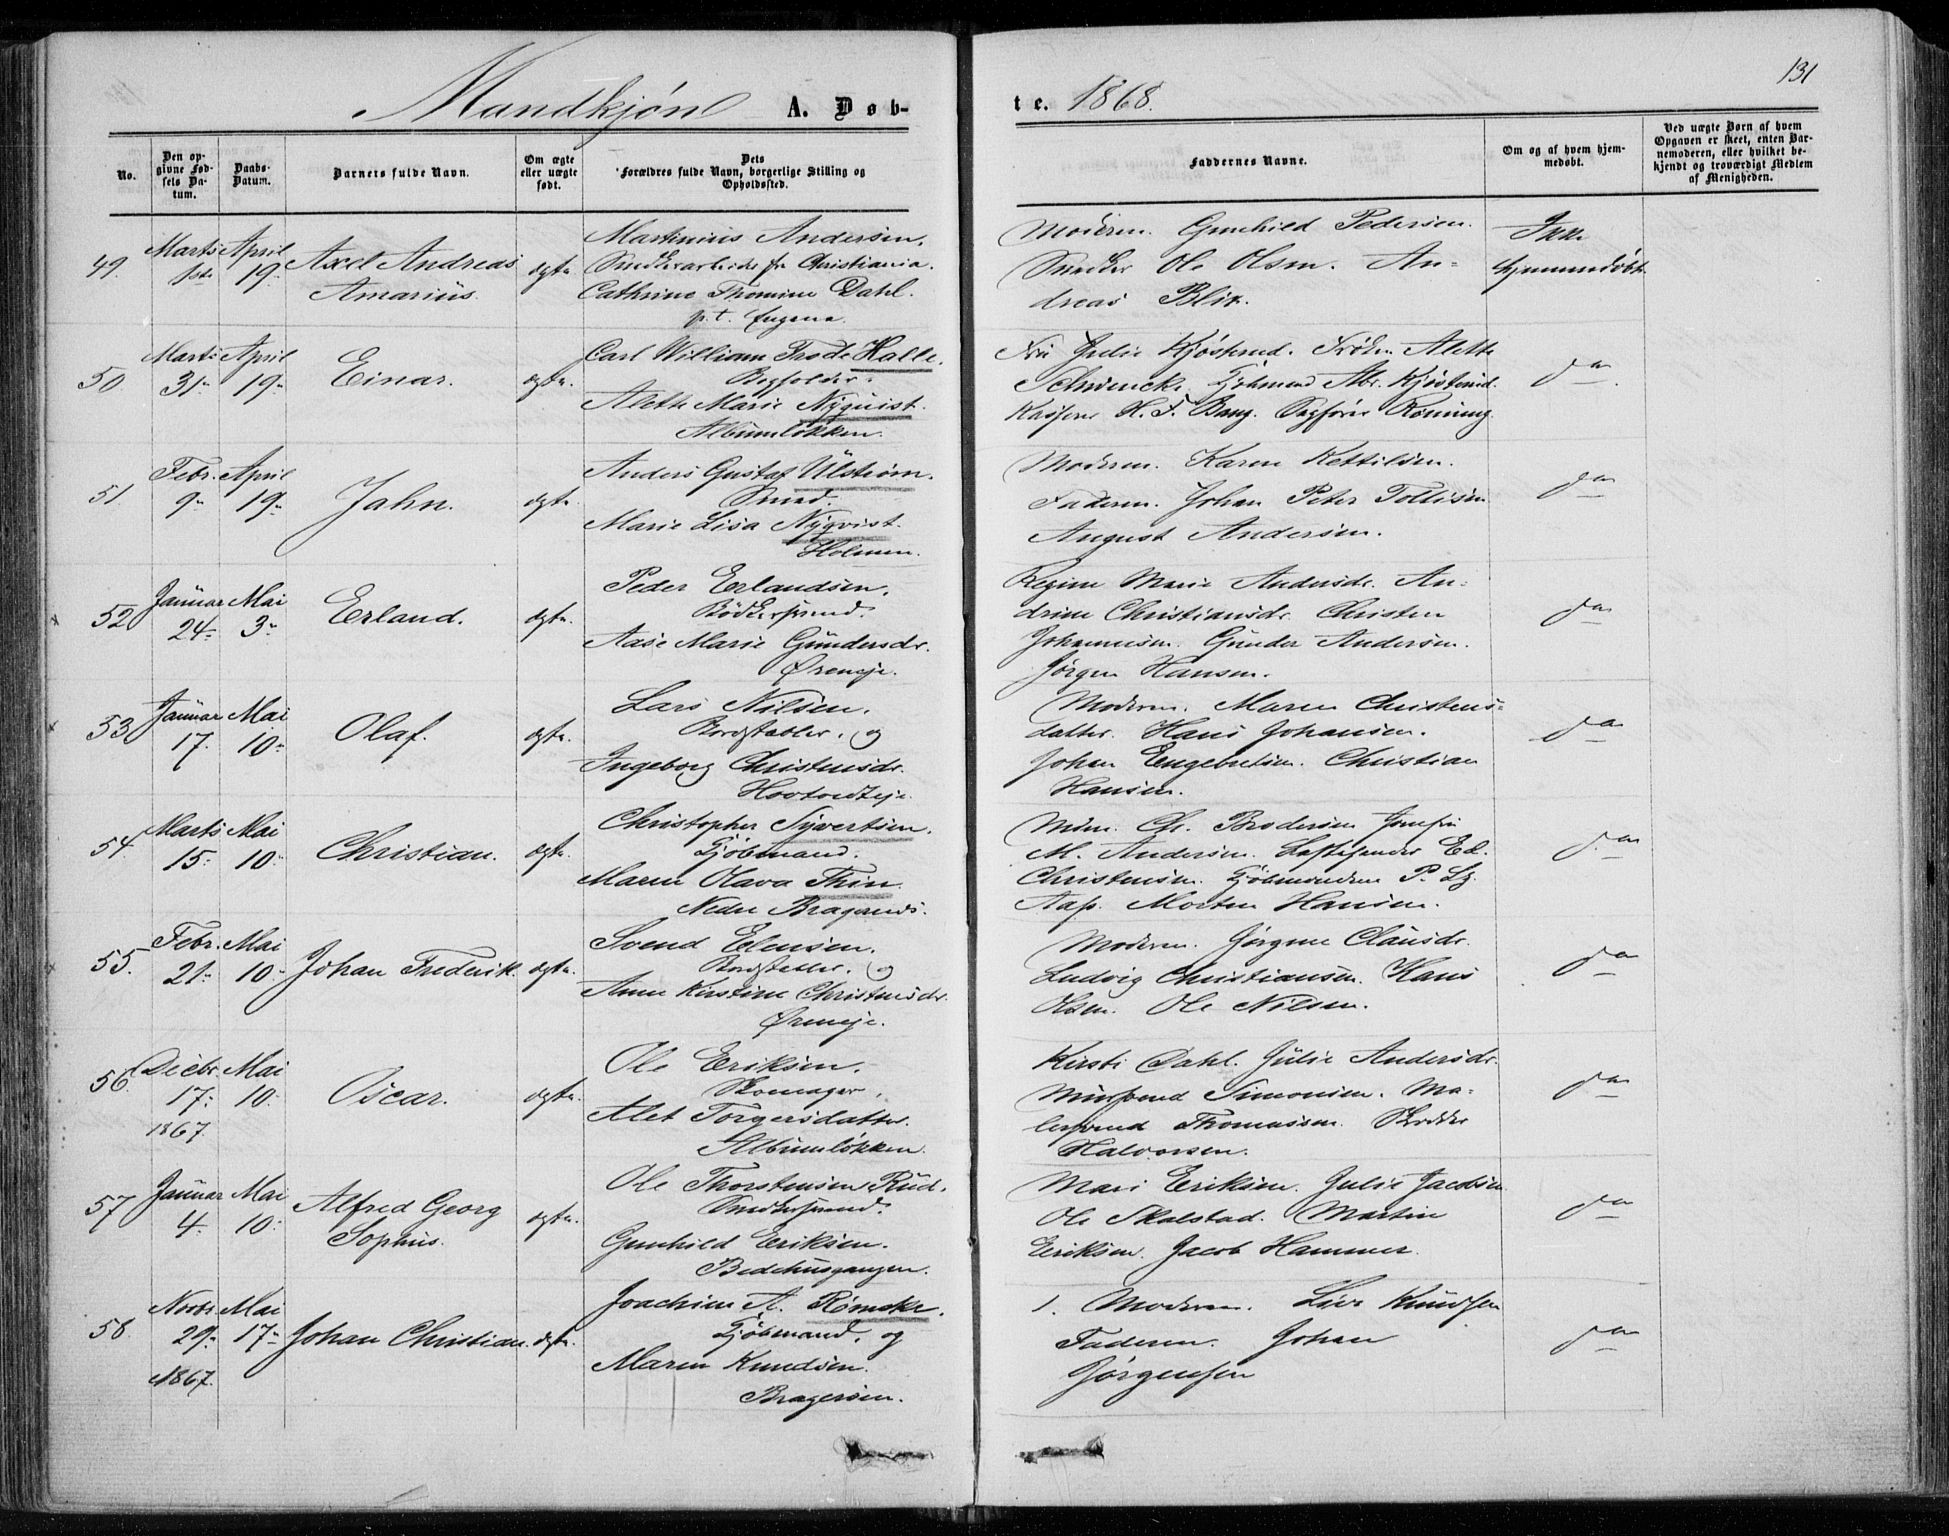 131
Mandkjøn A. Døb-
te. 1868.
No.
Den op-
givne Fød-
sels Da-
tum.
Daabs-
Datum.
Barnets fulde Navn.
Om ægte
eller uægte
født.
Dets
Forældres fulde Navn, borgerlige Stilling og
Opholdssted.
Faddernes Navne.
Om og af hvem hjem-
medøbt.
Ved uægte Børn af hvem
Opgaven er skeet, enten Bar-
nemoderen, eller hvilket be-
kjendt og troværdigt Medlem
af Menigheden.
49.
Marts
1ste
April
19.
Axel Andreas
Amarius.
ægte.
Martinius Andersen.
Snedkerarbeider fr Christiania.
Cathrine Thomine Dahl.
p.t. Eugena.
Moderen. Gunhild Pedersen.
Snedker Ole Olsen. An-
dreas Blix.
Ikke
hjemmedøbt.
50.
Marts
31.
April
19.
Einar.
ægte.
Carl William Trode Halle.
Bogholder.
Alette Marie Nyquist.
Albumløkken.
Fru Julie Kjøsterud. Frøken Alette
Schwencke. Kjøbmand Abr. Kjøsterud.
Kasserer H. F. Bang. Sagfører Rønning.
do
51.
Febr.
9.
April
19.
Jahn.
ægte.
Anders Gustaf Ulstrøm.
Smed.
Marie Lisa Nyqvist.
Holmen.
Moderen. Karen Kettilsen.
Faderen. Johan Peter Tollisen
August Andersen.
do
52.
Januar
24.
Mai
3.
Erland.
ægte.
Peder Erlandsen.
Bødkersvend.
Aase Marie Gundersdr.
Øreneje.
Regine Marie Andersdr. An-
drine Christiansdr. Christen
Johannesen. Gunder Andersen.
Jørgen Hansen.
do
53.
Januar
17.
Mai
10.
Olaf.
ægte.
Lars Nilsen.
Bordstabler. og
Ingeborg Christensdr.
Moderen. Maren Christens-
datter. Hans Johansen.
Johan Engebretsen. Christian
Hansen.
do
54.
Marts
15.
Mai
10.
Christian.
ægte.
Christopher Syvertsen.
Kjøbmand.
Maren Olava Thin.
Nedre Bragernes.
Mdm. Ch. Brodersen Jomfru
M. Andersen. Ed.
Christensen. Kjøbmændene P. Lz.
Aas. Morten Hansen.
do
55.
Febr.
21.
Mai
10.
Johan Frederik.
ægte.
Svend Elensen.
Bordstabler. og
Anne Kirstine Christensdr.
Øreneje.
Moderen. Jørgine Clausdr.
Ludvig Christiansen. Hans
Olsen. Ole Nilsen.
do
56.
Decbr.
17.
1867.
Mai
10.
Oscar.
ægte.
Ole Eriksen.
Skomager.
Alet Torgersdatter.
Albumløkken.
Kirsti Dahl. Julie Andersdr.
Mursvend Simonsen. Ma-
lersvend Thomassen. Skrædder
Halvorsen.
do
57.
Januar
4.
Mai
10.
Alfred Georg
Sophus.
ægte.
Ole Thorstensen Rud.
Snedkersvend.
Gunhild Eriksen.
Bedehusgangen.
Mari Eriksen. Julie Jacobsen
Ole Skalstad. Martin
Eriksen. Jacob Hammer.
do
58.
Novbr.
29.
1867.
Mai
17.
Johan Christian.
ægte.
Joachim A. Rømcke.
Kjøbmand. og
Maren Knudsen.
Bragerøen.
1. Moderen. Live Knudsen
Faderen. Johan
Jørgensen
do